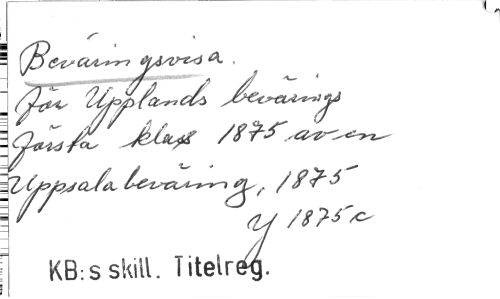 Beväringsvisa.
för Upplands bevärings
första klass 1875 av en
Uppsalabeväring, 1875
Y 1875 c
KB:s skill. Titelreg.